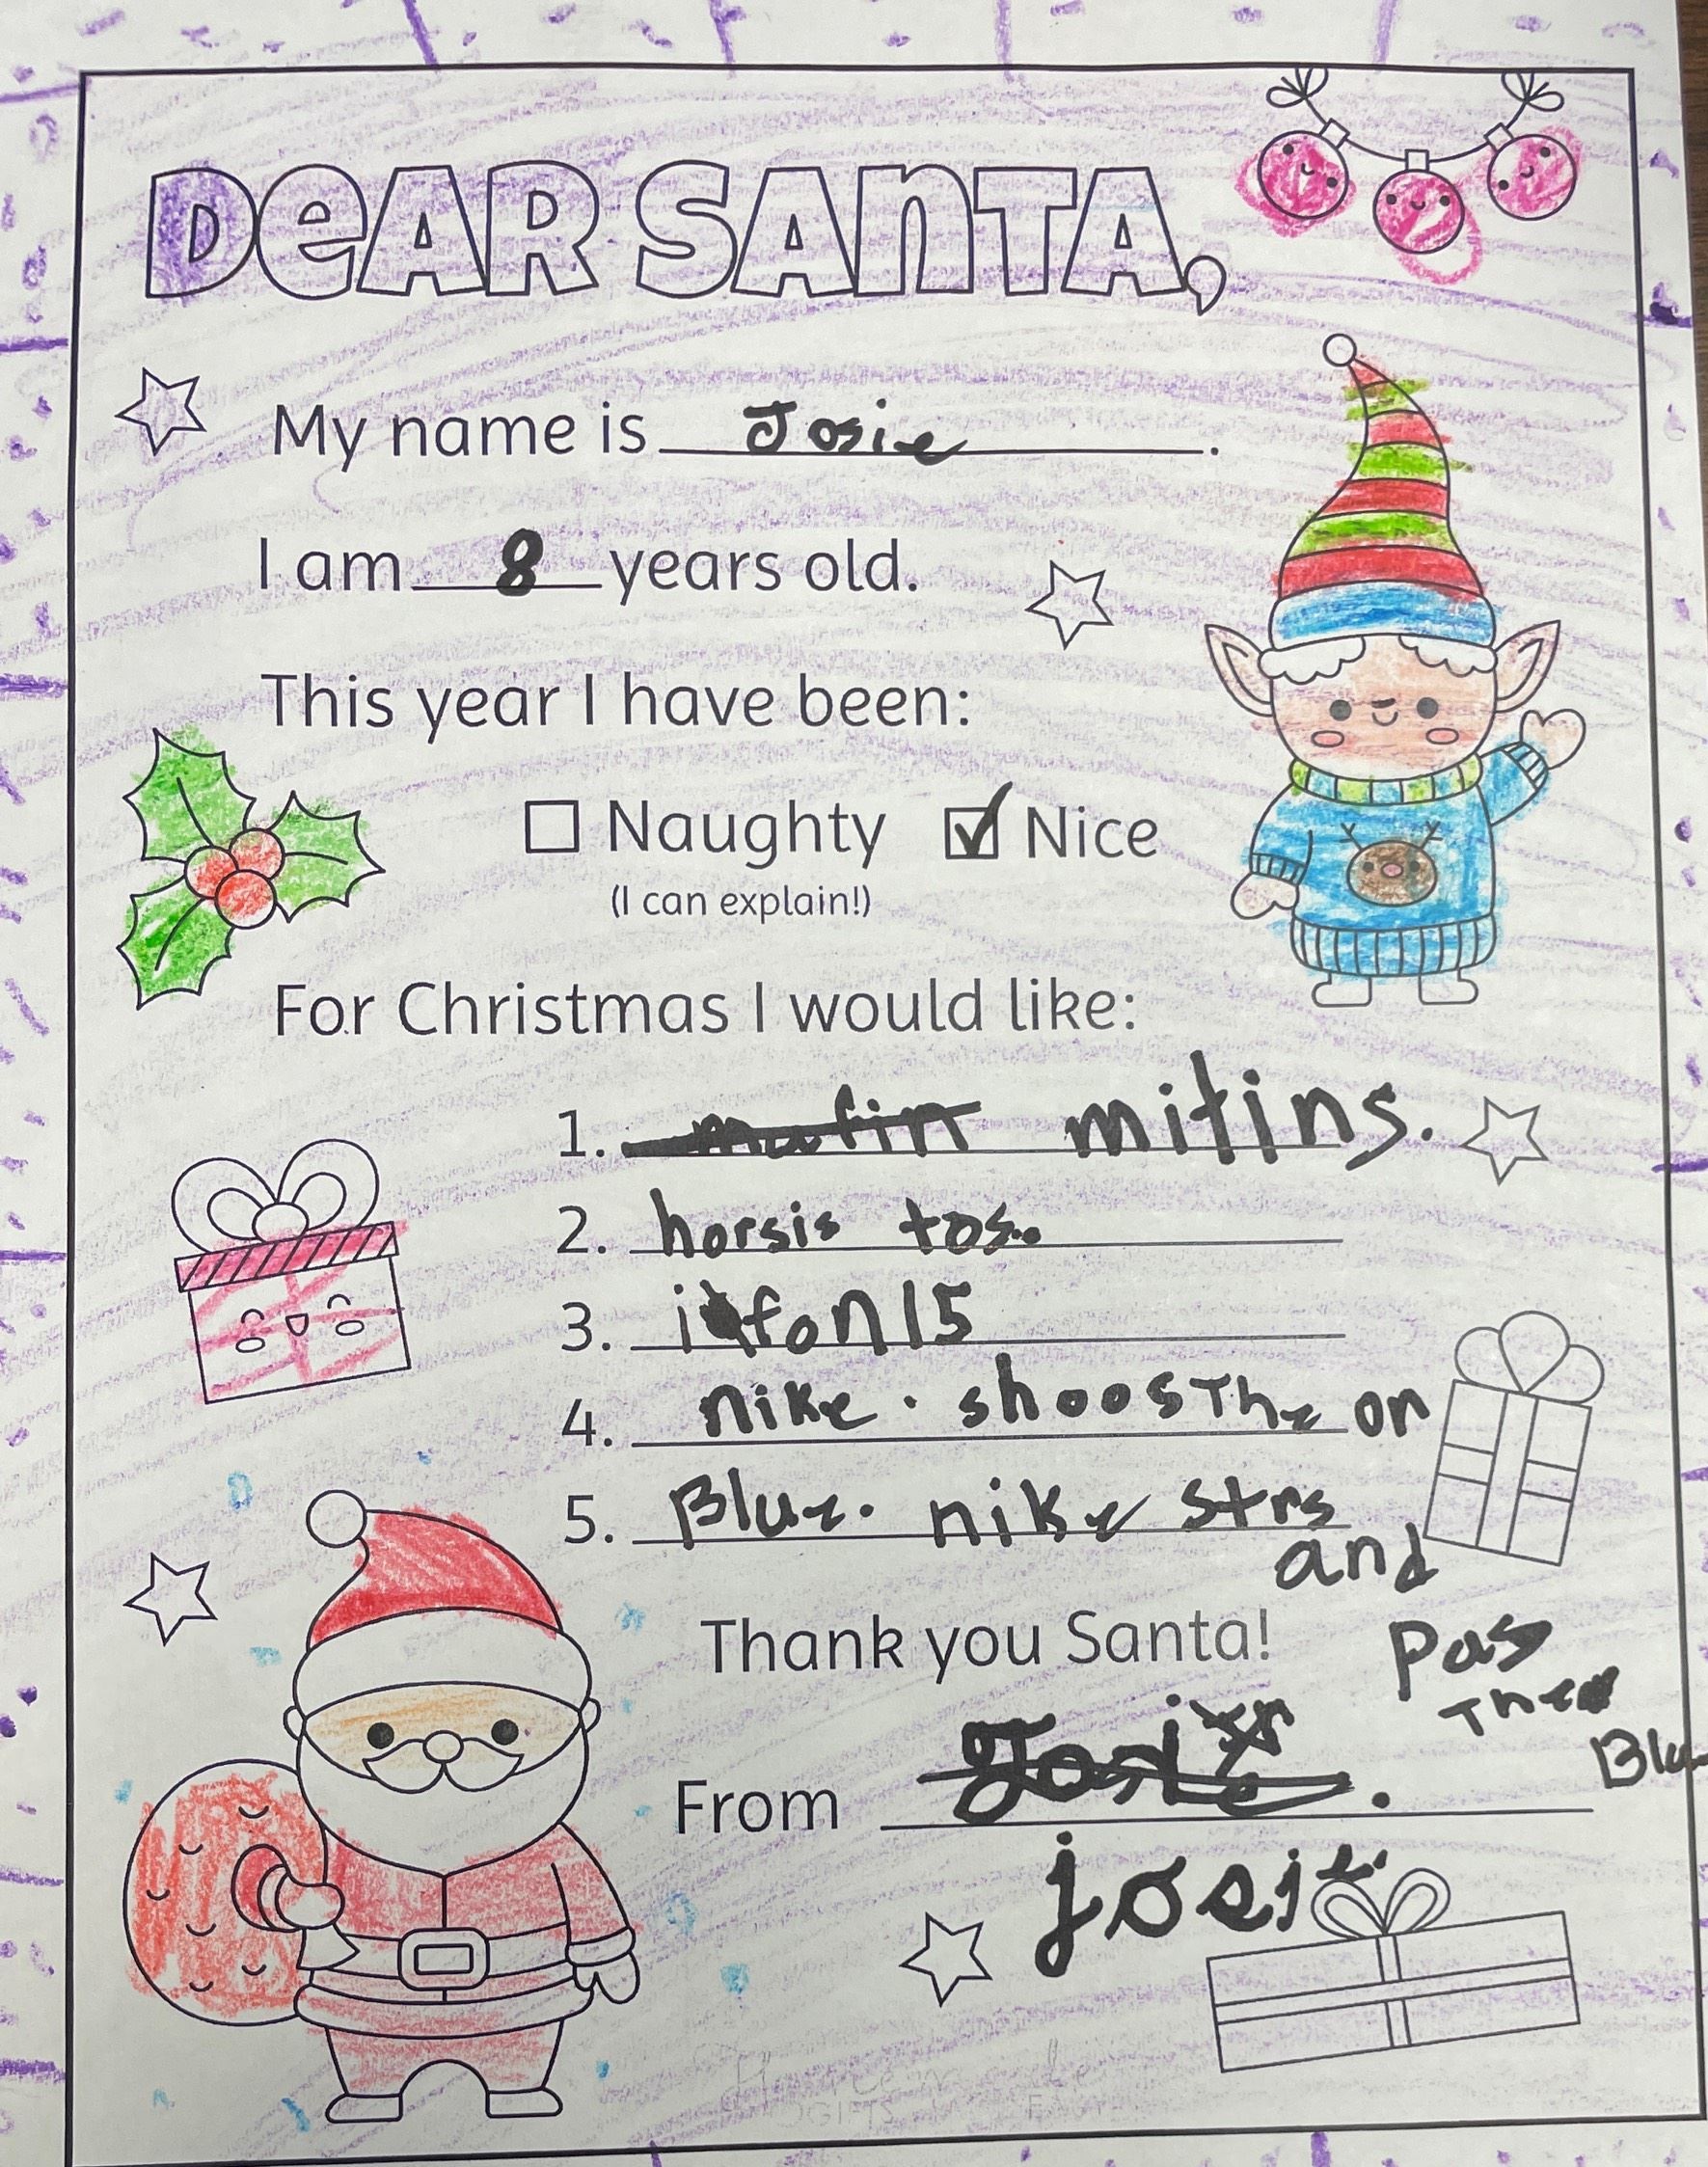 DeAR SAnTA,
My name is Josie.
I am 8 years old.
This year I have been:
Naughty Nice
(I can explain!)
For Christmas I would like:
1. mufin mitins.
2. horsis tos.
3. ifon15
4. nike. shoos The on
5. Blue. nike strs
and
Thank you Santa!
pas
The
Blu
From Josie.
josie.